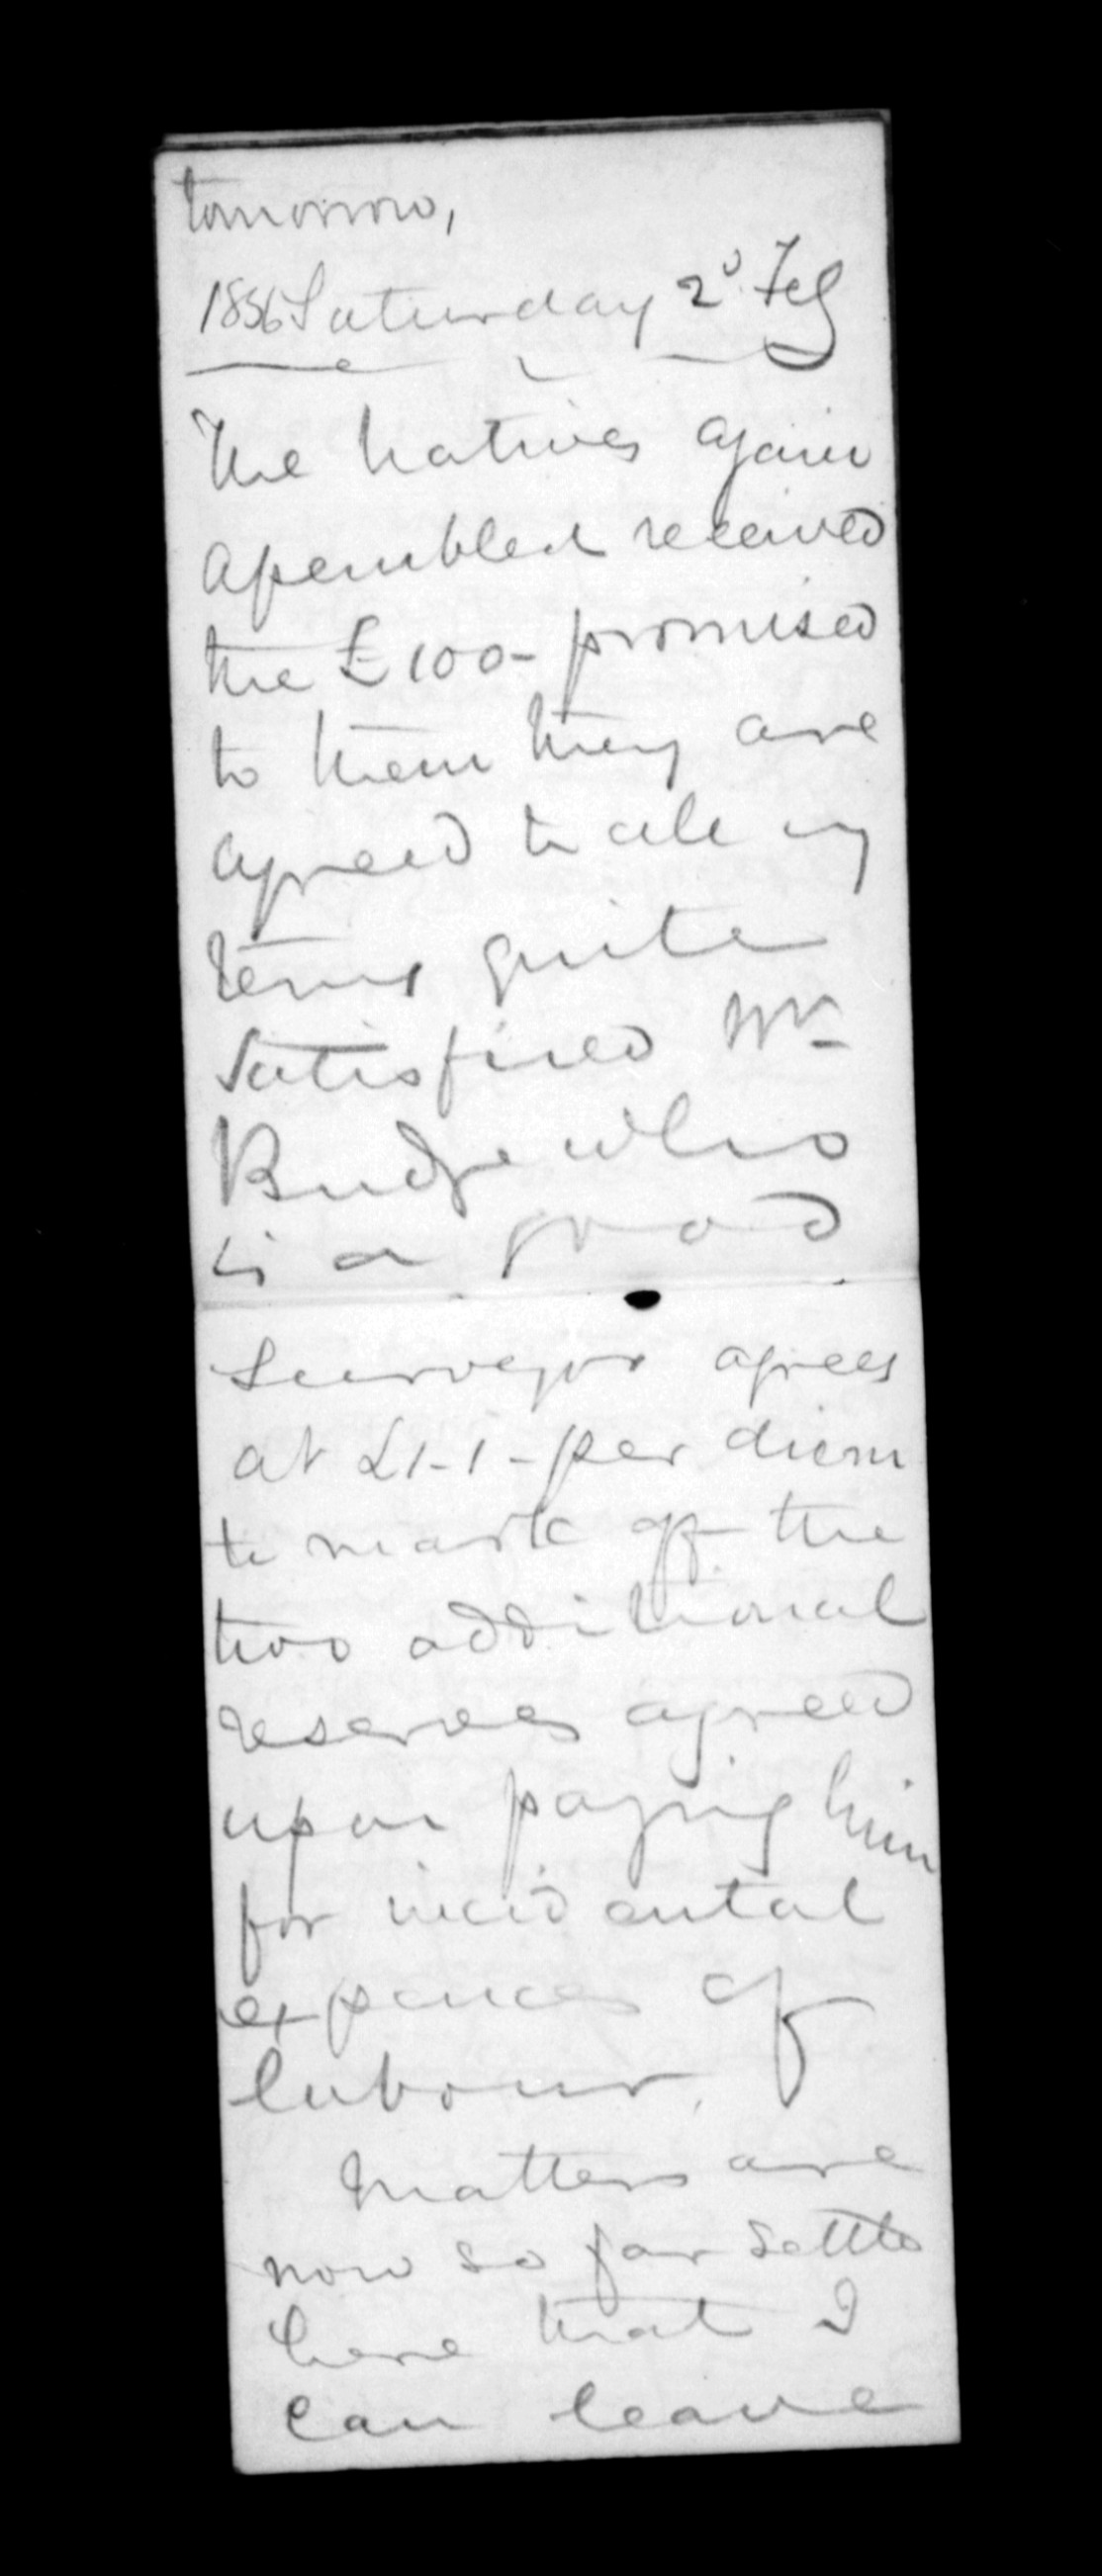 tomorrow,
1856 Saturday 2d Feb
The Natives again
assembled received
the £100- promised
to them they are
agreed to all my
terms quite
satisfied Mr
Budge who
is a good
Surveyor agrees
at £1-1- per diem
to mark off the
two additional
reserves agreed
upon paying him
for incidental
expences of
labour,
Matters are
now so far settled
here that I
can leave